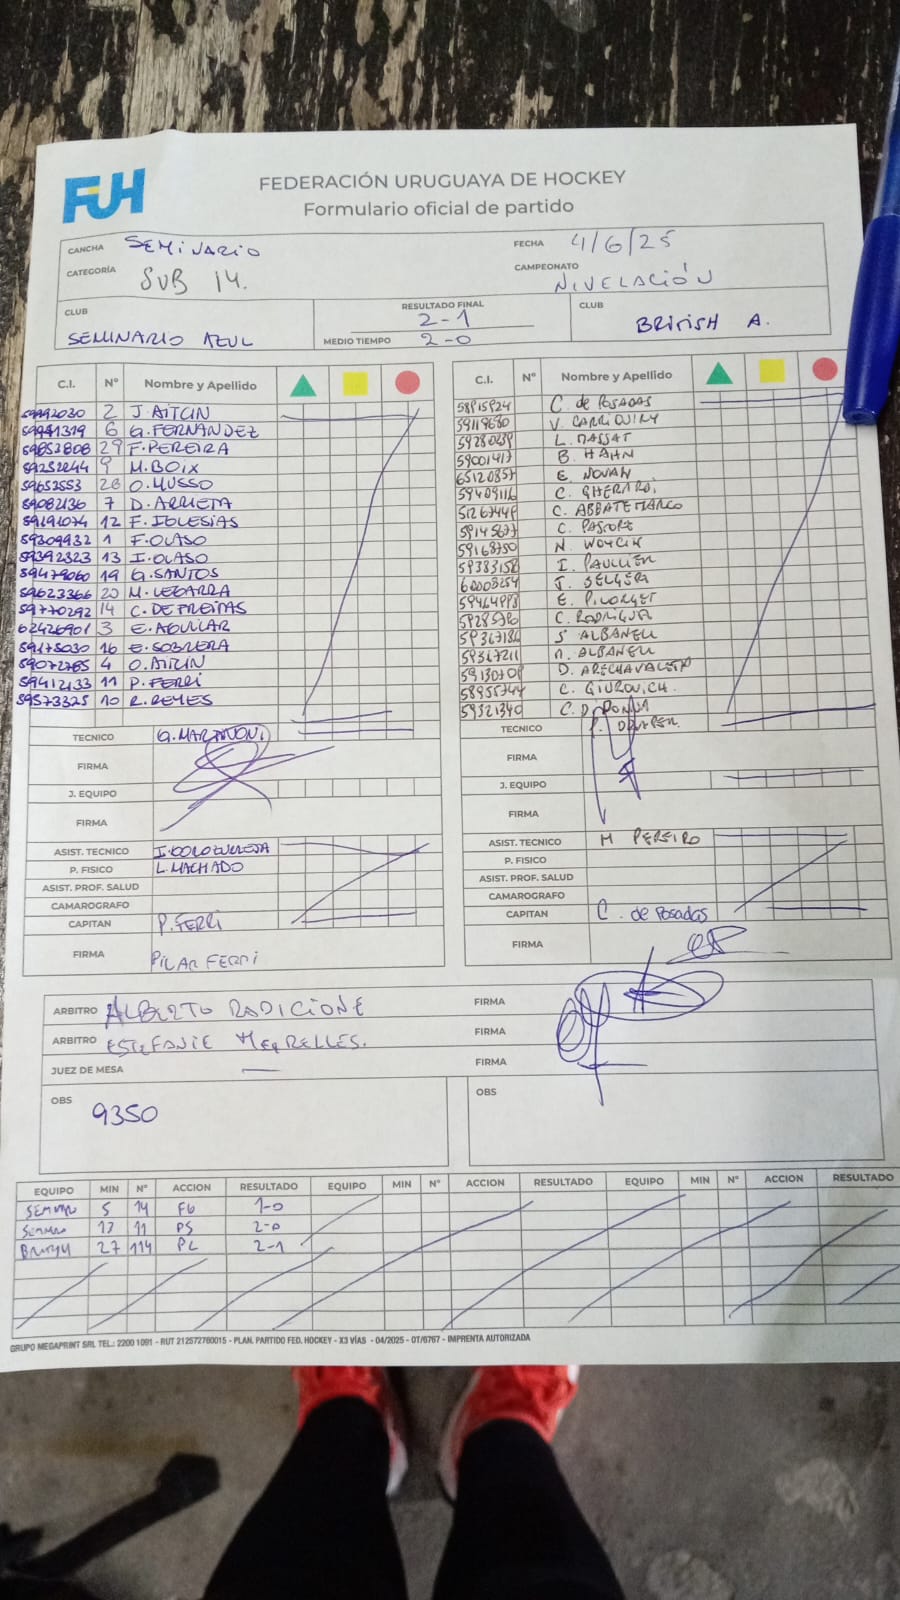 FUH
FEDERACIÓN URUGUAYA DE HOCKEY
Formulario oficial de partido
CANCHA SEMINARIO FECHA 4/6/25
CATEGORÍA SUB 14. CAMPEONATO NIVELACIÓN
CLUB SEMINARIO AZUL
RESULTADO FINAL 2-1
MEDIO TIEMPO 2-0
CLUB BRITISH A.
C.I. Nº Nombre y Apellido
2 J. AITCIN
6 G. FERNANDEZ
29 F. PEREIRA
9 M. BOIX
28 O. MUSSO
59082136 7 D. ARRIETA
59191074 12 F. IGLESIAS
59309932 1 F. OLASO
59392323 13 I. OLASO
59479060 19 G. SANTOS
59623366 20 M. LEGARRA
59770292 14 C. DE FREITAS
62426901 3 E. AGUILAR
59175030 16 E. SOBRERA
59072765 4 O. AITCIN
59412133 11 P. FERRI
59573325 10 R. REYES
TECNICO G. MARZANONI
FIRMA
J. EQUIPO
FIRMA
ASIST. TECNICO
P. FISICO L. MACHADO
ASIST. PROF. SALUD
CAMAROGRAFO
CAPITAN P. FERRI
FIRMA PILAR FERRI
C.I. Nº Nombre y Apellido
58915924 C. de POSADAS
59119680 V. CARRIQUIRY
L. MASSAT
59001417 B. HAHN
65120857 E. NOVAN
59409116 C. GHERARDI
C. ABBATEMARCO
59145677 C. PASTORE
59168750 N. WOYCIK
59383158 I. PAULLIER
60003254 J. SELGERA
E. PILORGET
C. RODRIGUEZ
59367186 S. ALBANELL
59367211 M. ALBANELL
59130708 D. ARECHAVALETA
58955744 C. GIUROVICH.
59321340
TECNICO P. DRAPER
FIRMA
J. EQUIPO
FIRMA
ASIST. TECNICO M PEREIRO
P. FISICO
ASIST. PROF. SALUD
CAMAROGRAFO
CAPITAN C. de Posadas
FIRMA
ARBITRO ALBERTO RADICIONE FIRMA
ARBITRO ESTEFANIE MEIRELLES. FIRMA
JUEZ DE MESA — FIRMA
OBS 9350
OBS
EQUIPO MIN Nº ACCION RESULTADO EQUIPO MIN Nº ACCION RESULTADO EQUIPO MIN Nº ACCION RESULTADO
5 14 FG 1-0
11 PS 2-0
27 114 PC 2-1
GRUPO MEGAPRINT SRL TEL.: 2200 1091 - RUT 212572760015 - PLAN. PARTIDO FED. HOCKEY - X3 VÍAS - 04/2025 - OT/6767 - IMPRENTA AUTORIZADA